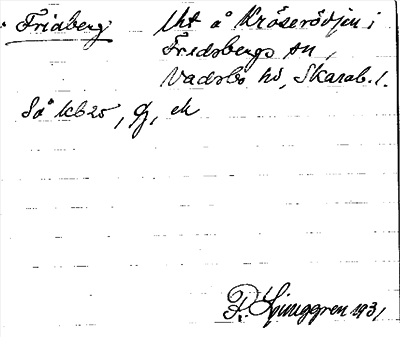 Fridberg: Uht å Kröserödjan i
Fredsbergs sn,
Vadsbo hd, Skarab. l.
Så kb 25, Gj, ek
R. Ljunggren 1931